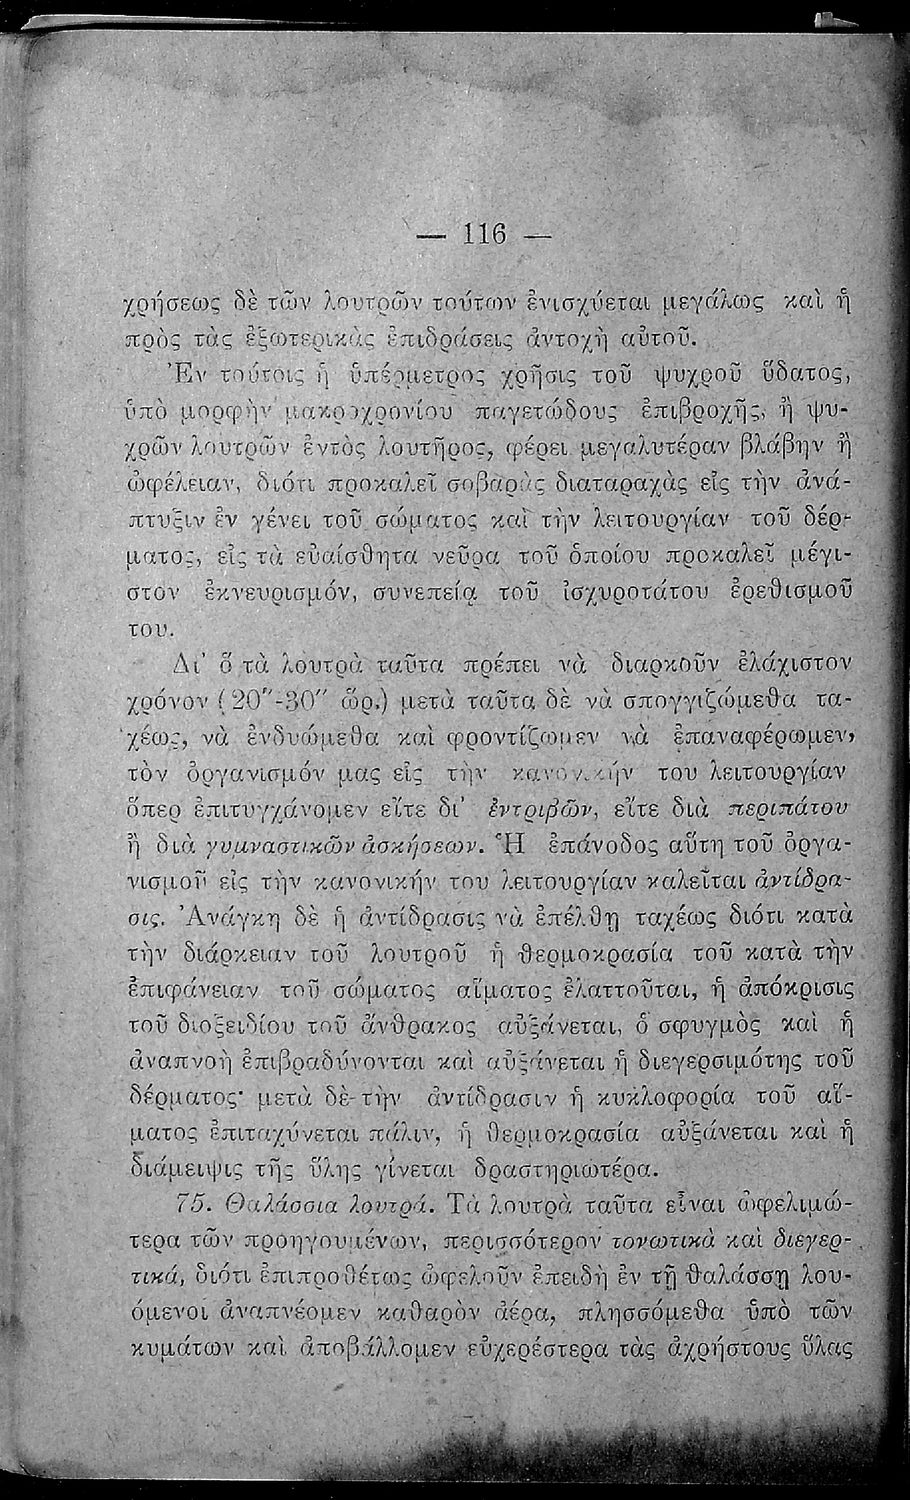 — 116 —
χρήσεως δὲ τῶν λουτρῶν τούτων ἐνισχύεται μεγάλως καὶ ἡ
πρὸς τὰς ἐξωτερικὰς ἐπιδράσεις ἀντοχὴ αὐτοῦ.
Ἐν τούτοις ἡ ὑπέρμετρος χρῆσις τοῦ ψυχροῦ ὕδατος,
ὑπὸ μορφὴν μακροχρονίου παγετώδους ἐπιβροχῆς, ἢ ψυ-
χρῶν λουτρῶν ἐντὸς λουτῆρος, φέρει μεγαλυτέραν βλάβην ἢ
ὠφέλειαν, διότι προκαλεῖ σοβαρὰς διαταραχὰς εἰς τὴν ἀνά-
πτυξιν ἐν γένει τοῦ σώματος καὶ τὴν λειτουργίαν τοῦ δέρ-
ματος, εἰς τὰ εὐαίσθητα νεῦρα τοῦ ὁποίου προκαλεῖ μέγι-
στον ἐκνευρισμόν, συνεπείᾳ τοῦ ἰσχυροτάτου ἐρεθισμοῦ
του.
Δι' ὃ τὰ λουτρὰ ταῦτα πρέπει νὰ διαρκοῦν ἐλάχιστον
χρόνον (20''-30'' ὥρ.) μετὰ ταῦτα δὲ νὰ σπογγιζώμεθα τα-
χέως, νὰ ἐνδυώμεθα καὶ φροντίζωμεν νὰ ἐπαναφέρωμεν,
τὸν ὀργανισμόν μας εἰς τὴν κανονικήν του λειτουργίαν
ὅπερ ἐπιτυγχάνομεν εἴτε δι' ἐντριβῶν, εἴτε διὰ περιπάτου
ἢ διὰ γυμναστικῶν ἀσκήσεων. Ἡ ἐπάνοδος αὕτη τοῦ ὀργα-
νισμοῦ εἰς τὴν κανονικήν του λειτουργίαν καλεῖται ἀντίδρα-
σις. Ἀνάγκη δὲ ἡ ἀντίδρασις νὰ ἐπέλθῃ ταχέως διότι κατὰ
τὴν διάρκειαν τοῦ λουτροῦ ἡ θερμοκρασία τοῦ κατὰ τὴν
ἐπιφάνειαν τοῦ σώματος αἵματος ἐλαττοῦται, ἡ ἀπόκρισις
τοῦ διοξειδίου τοῦ ἄνθρακος αὐξάνεται, ὁ σφυγμὸς καὶ ἡ
ἀναπνοὴ ἐπιβραδύνονται καὶ αὐξάνεται ἡ διεγερσιμότης τοῦ
δέρματος· μετὰ δὲ-τὴν ἀντίδρασιν ἡ κυκλοφορία τοῦ αἵ-
ματος ἐπιταχύνεται πάλιν, ἡ θερμοκρασία αὐξάνεται καὶ ἡ
διάμειψις τῆς ὕλης γίνεται δραστηριωτέρα.
75. Θαλάσσια λουτρά. Τὰ λουτρὰ ταῦτα εἶναι ὠφελιμώ-
τερα τῶν προηγουμένων, περισσότερον τονωτικὰ καὶ διεγερ-
τικά, διότι ἐπιπροθέτως ὠφελοῦν ἐπειδὴ ἐν τῇ θαλάσσῃ λου-
όμενοι ἀναπνέομεν καθαρὸν ἀέρα, πλησσόμεθα ὑπὸ τῶν
κυμάτων καὶ ἀποβάλλομεν εὐχερέστερα τὰς ἀχρήστους ὕλας